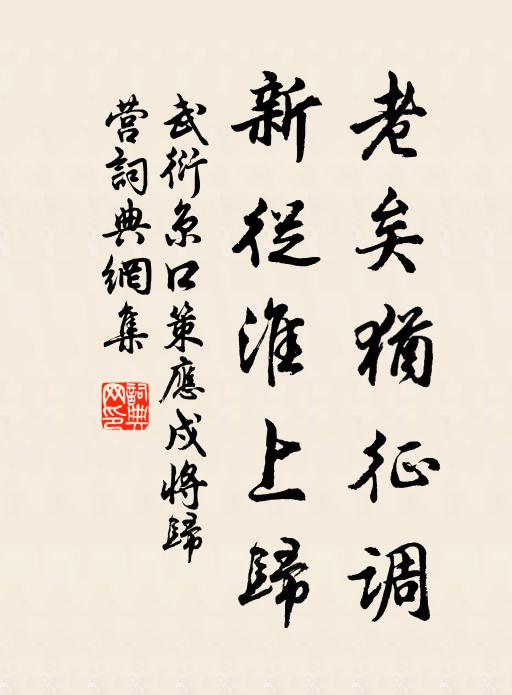 老矣猶征調
新從淮上歸
武衍京口策應戍將歸
營詞典網集
詞典
网印